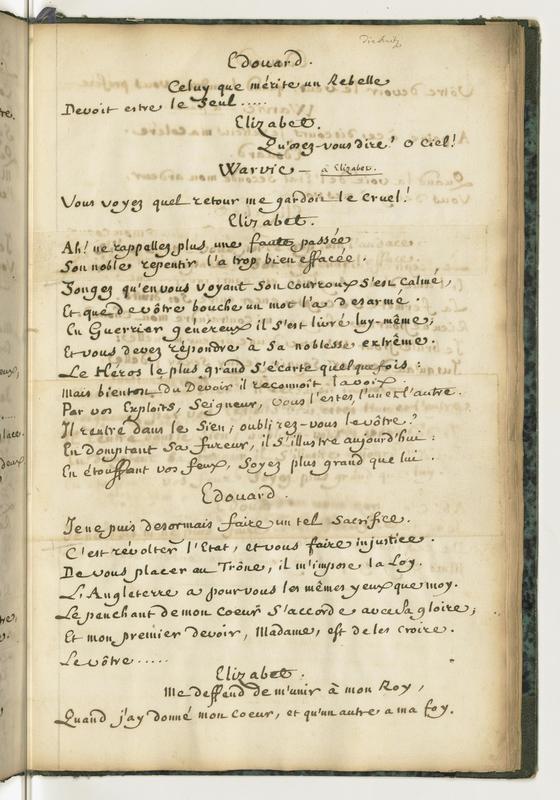 Edouard.
Celuy que mérite un Rebelle
Devoit estre le Seul.....
Elizabet.
Qu'osez-vous dire? o Ciel!
Warvic — à Elizabet.
Vous voyez quel retour me gardoit le Cruel!
Elizabet.
Ah! ne rappellez plus une faute passée
Son noble repentir l'a trop bien effacée.
Songez qu'en vous voyant Son couroux s'est calmé,
Et que de vôtre bouche un mot l'a desarmé.
En Guerrier généreux il S'est livré luy-même;
Et vous devez répondre à Sa noblesse extrême.
Le Héros le plus grand S'écarte quelquefois:
Mais bientost du Devoir il reconnoit la voix.
Par vos Exploits, Seigneur, vous l'estes l'un et l'autre.
Il rentre dans le Sien; oublirez-vous le vôtre?
En domptant Sa fureur, il S'illustre aujourd'hui:
En étouffant vos feux, Soyez plus grand que lui.
Edouard.
Je ne puis desormais faire un tel Sacrifice.
C'est révolter l'Etat, et vous faire injustice.
De vous placer au Trône, il m'impose la Loy.
L'Angleterre a pour vous les mêmes yeux que moy.
Le penchant de mon coeur S'accorde avec la gloire;
Et mon premier devoir, Madame, est de les croire.
Le vôtre.....
Elizabet.
Me deffend de m'unir à mon Roy,
Quand j'ay donné mon Coeur, et qu'un autre a ma foy.